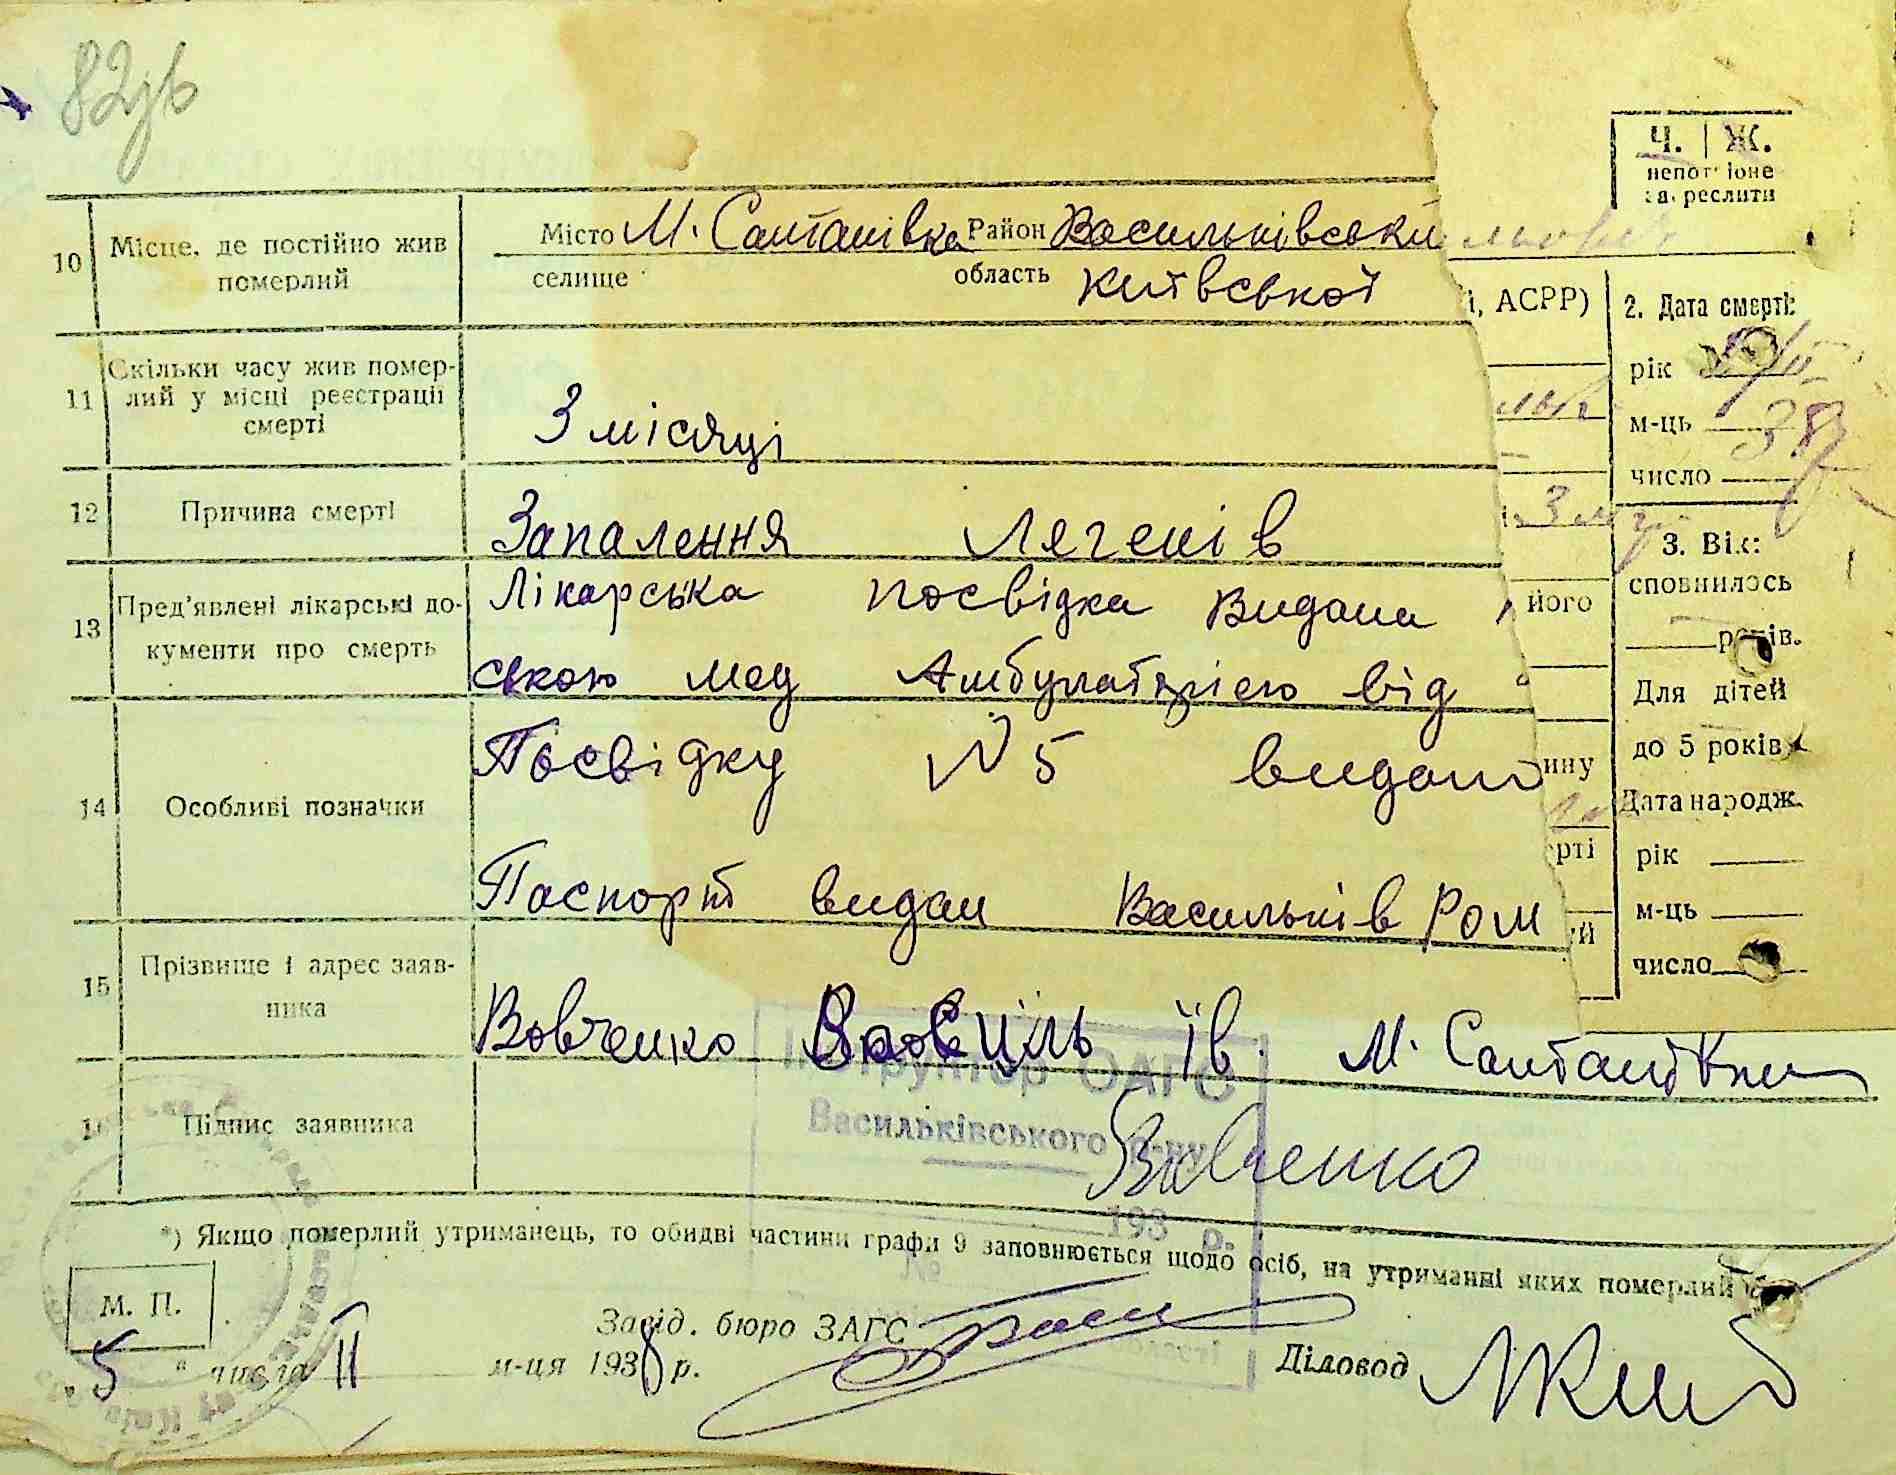 82
Ч. | Ж.
непот іоне
за реслити
10 Місце, де постійно жив померлий
Місто М. Салтанівка Район Васильківськи
селище область Київської
11 Скільки часу жив помер-
лий у місці реєстрації
смерті
3 місяці
12 Причина смерті
Запалення Легенів
13 Пред'явлені лікарські до-
кументи про смерть
Лікарська посвідка Видана
ською мед Амбулаторією від
14 Особливі позначки
Посвідку N 5 видано
Паспорт видан Васильків РОМ
15 Прізвище і адрес заяв-
ника
Вовченко Василь Ів. М. Салтанівка
16 Підпис заявника
Вовченко
Інструктор ОАГС
Васильківського р-ну
193 р.
№
*) Якщо померлий утриманець, то обидві частини графи 9 заповнюється щодо осіб, на утриманні яких померлий
М. П.
Завід. бюро ЗАГС
5 " числа II м-ця 1938 р.
Діловод
і, АСРР)
його
ину
ерті
ий
2. Дата смерті:
рік
м-ць 38
число
3. Вік:
сповнилось
років.
Для дітей
до 5 років
Дата народж.
рік
м-ць
число